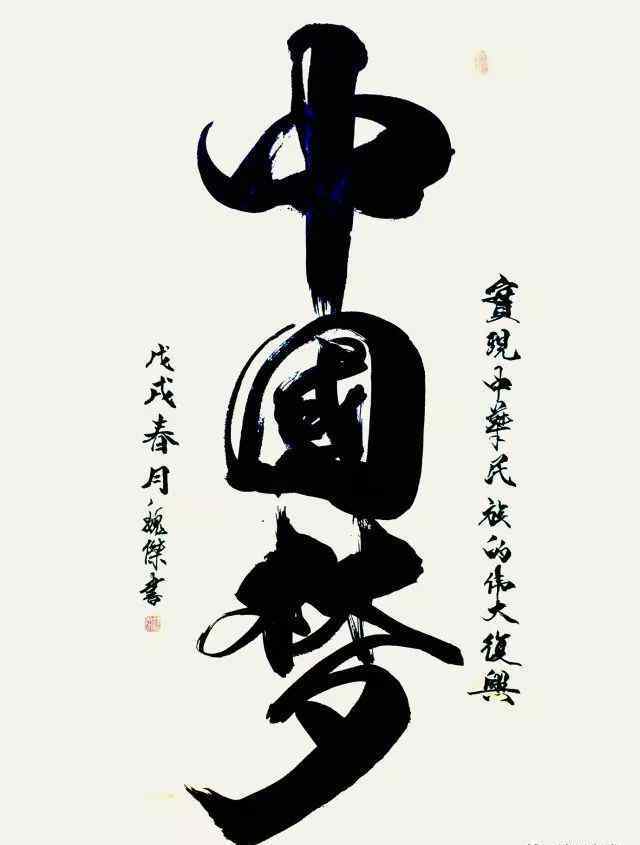 實現中華民族的伟大復興
中國梦
戊戌春月魏傑書